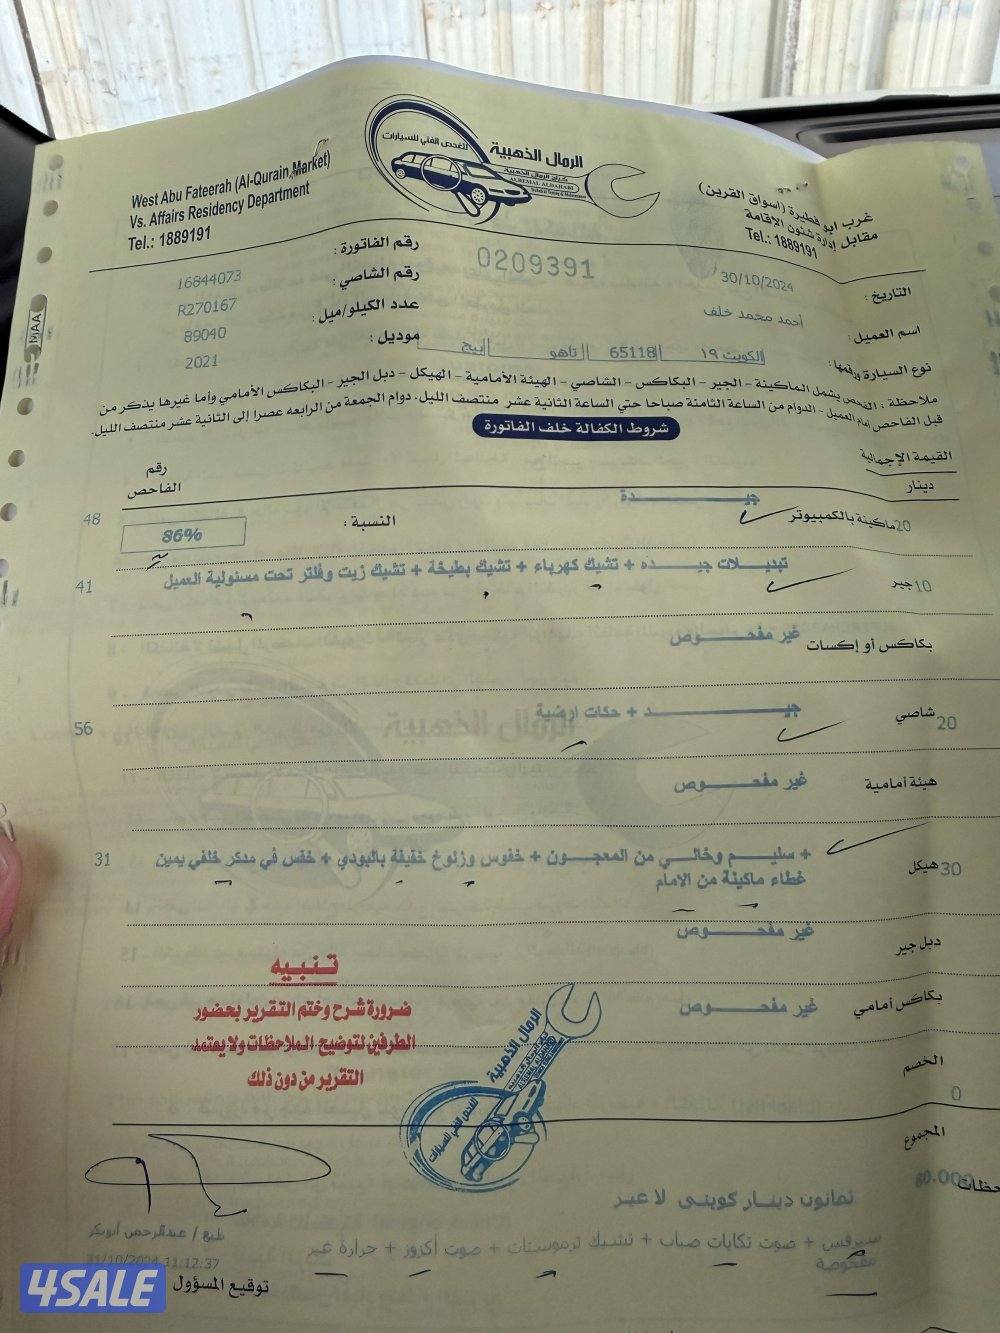 West Abu Fateerah (Al-Qurain Market)
Vs. Affairs Residency Department
Tel.: 1889191
للفحص الفني للسيارات
الرمال الذهبية
كراج الرمال الذهبية
ALREMAL ALDAHABI
غرب ابو فطيرة (اسواق القرين)
مقابل إدارة شئون الإقامة
Tel.: 1889191
رقم الفاتورة : 16844073
0209391
التاريخ : 30/10/2024
رقم الشاصي : R270167
اسم العميل : أحمد محمد خلف
عدد الكيلو/ميل : 89040
نوع السيارة ورقمها : الكويت ١٩ 65118 تاهو بيج
موديل : 2021
ملاحظة : الفحص يشمل الماكينة - الجير - البكاكس - الشاصي - الهيئة الأمامية - الهيكل - دبل الجير - البكاكس الأمامي وأما غيرها يذكر من
قبل الفاحص أمام العميل - الدوام من الساعة الثامنة صباحا حتي الساعة الثانية عشر منتصف الليل. دوام الجمعة من الرابعه عصرا إلى الثانية عشر منتصف الليل.
شروط الكفالة خلف الفاتورة
القيمة الإجمالية
دينار
رقم
الفاحص
20 ماكينة بالكمبيوتر جيـــدة النسبة : 86% 48
10 جير تبديـلات جيـــده + تشيك كهرباء + تشيك بطيخة + تشيك زيت وفلتر تحت مسئولية العميل 41
بكاكس أو إكسات غير مفحـــوص
20 شاصي جيـــد + حكات ارضية 56
هيئة أمامية غير مفحـــوص
30 هيكل + سليـــم وخالـي من المعجـــون + خفوس وزنوخ خفيفة بالبودي + خفس في مدكر خلفي يمين 31
غطاء ماكينة من الامام
دبل جير غير مفحـــوص
بكاكس أمامي غير مفحـــوص
تـنـبـيـه
ضرورة شرح وختم التقرير بحضور
الطرفين لتوضيح الملاحظات ولا يعتمد
التقرير من دون ذلك
الرمال الذهبية
للفحص الفني للسيارات
الخصم
0
المجموع
80.000
ثمانون دينار كويتى لا غير
سيرفس + صوت تكايات صباب + تشيك ترموستات + صوت أكزوز + حرارة غير
مفحوصة
طبع / عبدالرحمن أبوبكر
31/10/2024 11:12:37
توقيع المسؤول
4SALE